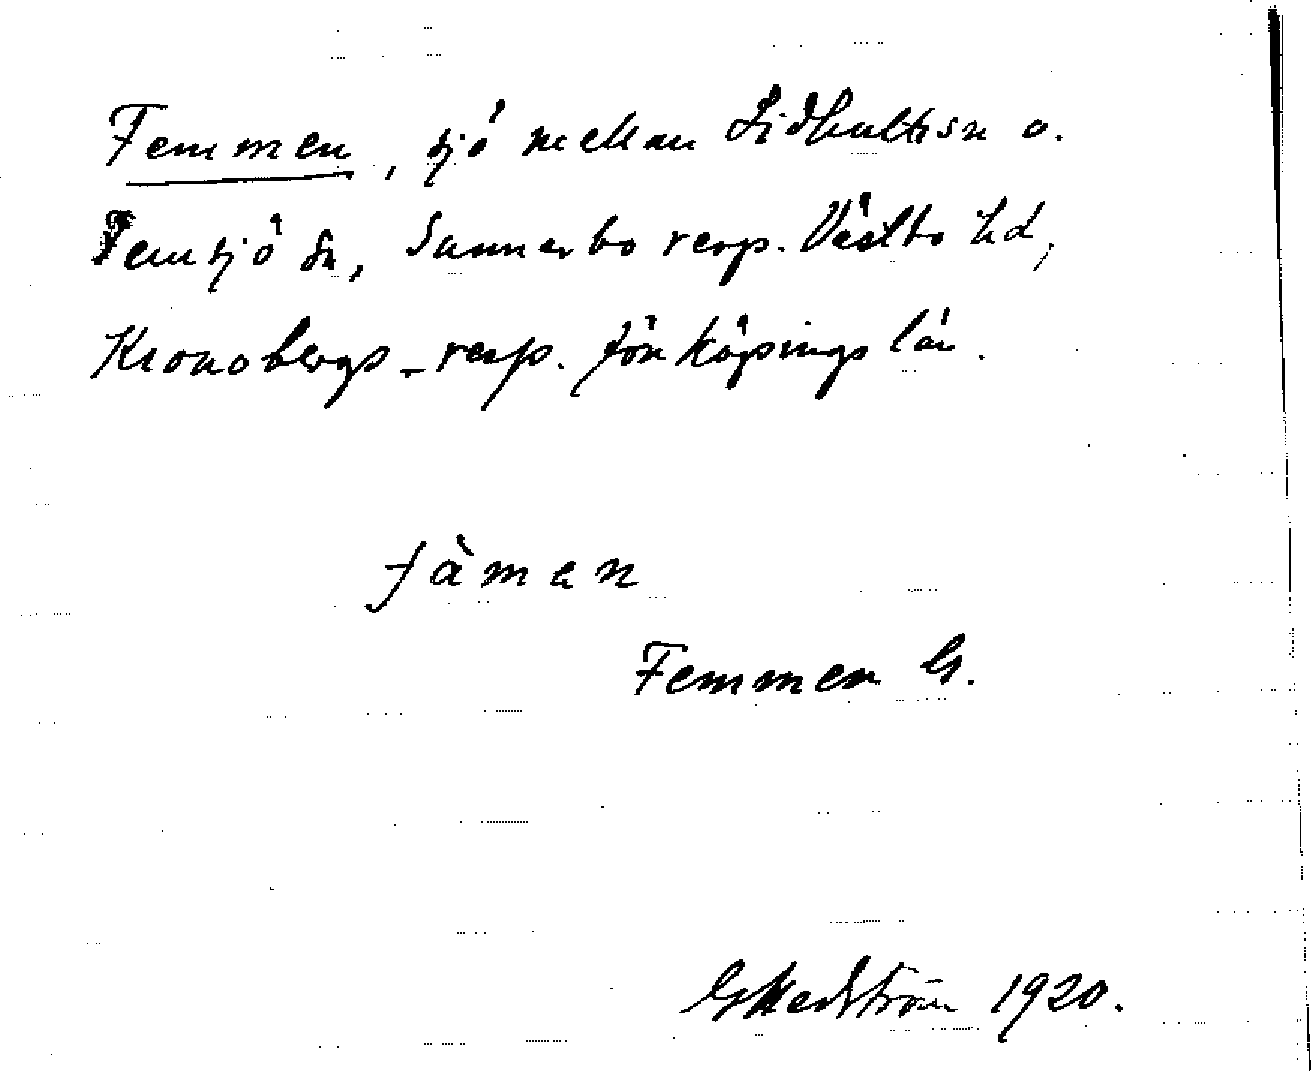 Femmen, sjö mellan Lidhults sn o.
Femsjö sn, Sunnerbo resp. Västbo hd,
Kronobergs- resp. Jönköpings län.
fàman
Femmen G.
G Hedström 1920.